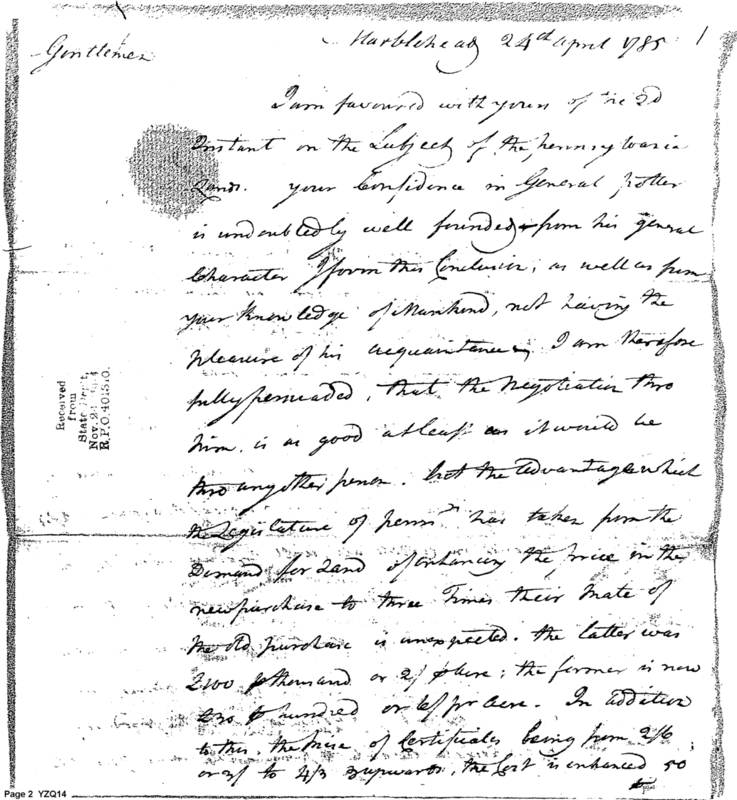 Marblehead 24th April 1785
1
Gentlemen
I am favoured with yours of the 2d
Instant on the Subject of the pennsylvania
Lands. your Confidence in General potter
is undoubtedly well founded from his general
Character I form this Conclusion, as well as from
your Knowledge of Mankind, not having the
pleasure of his acquaintance, I am therefore
fully persuaded, that the Negotiation thro
him, is as good at least as it would be
thro any other person. but the advantage which
the Legislature of penns has taken from the
Demand for Land of enhancing the price in the
new purchase to three Times their Rate of
the old purchase is unexpected. the latter was
£100 thousand or 2/ Acre; the former is now
£30 hundred or 6/ pr Acre. In addition
to this, the price of Certificates being from 2/6
or 3/ to 4/3 upwards, the Cost is enhanced 50
Received
from
State Dept.
Nov.
E.P.O.
Page 2 YZQ14